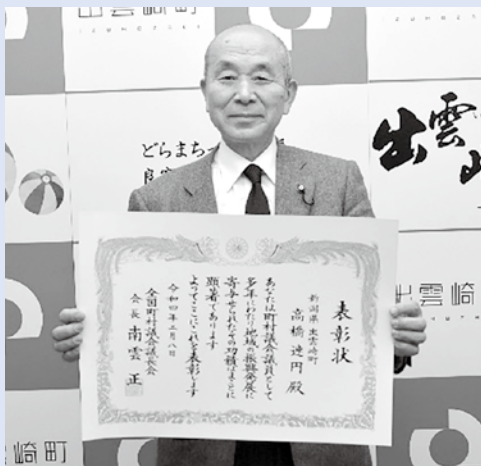 出雲崎町
IZUMOZAKI
どらまち
出雲
出雲崎
出雲崎町
表彰状
新潟県出雲崎町
高橋速円殿
あなたは町村議会議員として
多年にわたり地域の振興発展に
寄与せられたその功績はまことに
顕著であります
よってここにこれを表彰します
令和四年二月八日
全国町村議会議長会
会長 南雲正